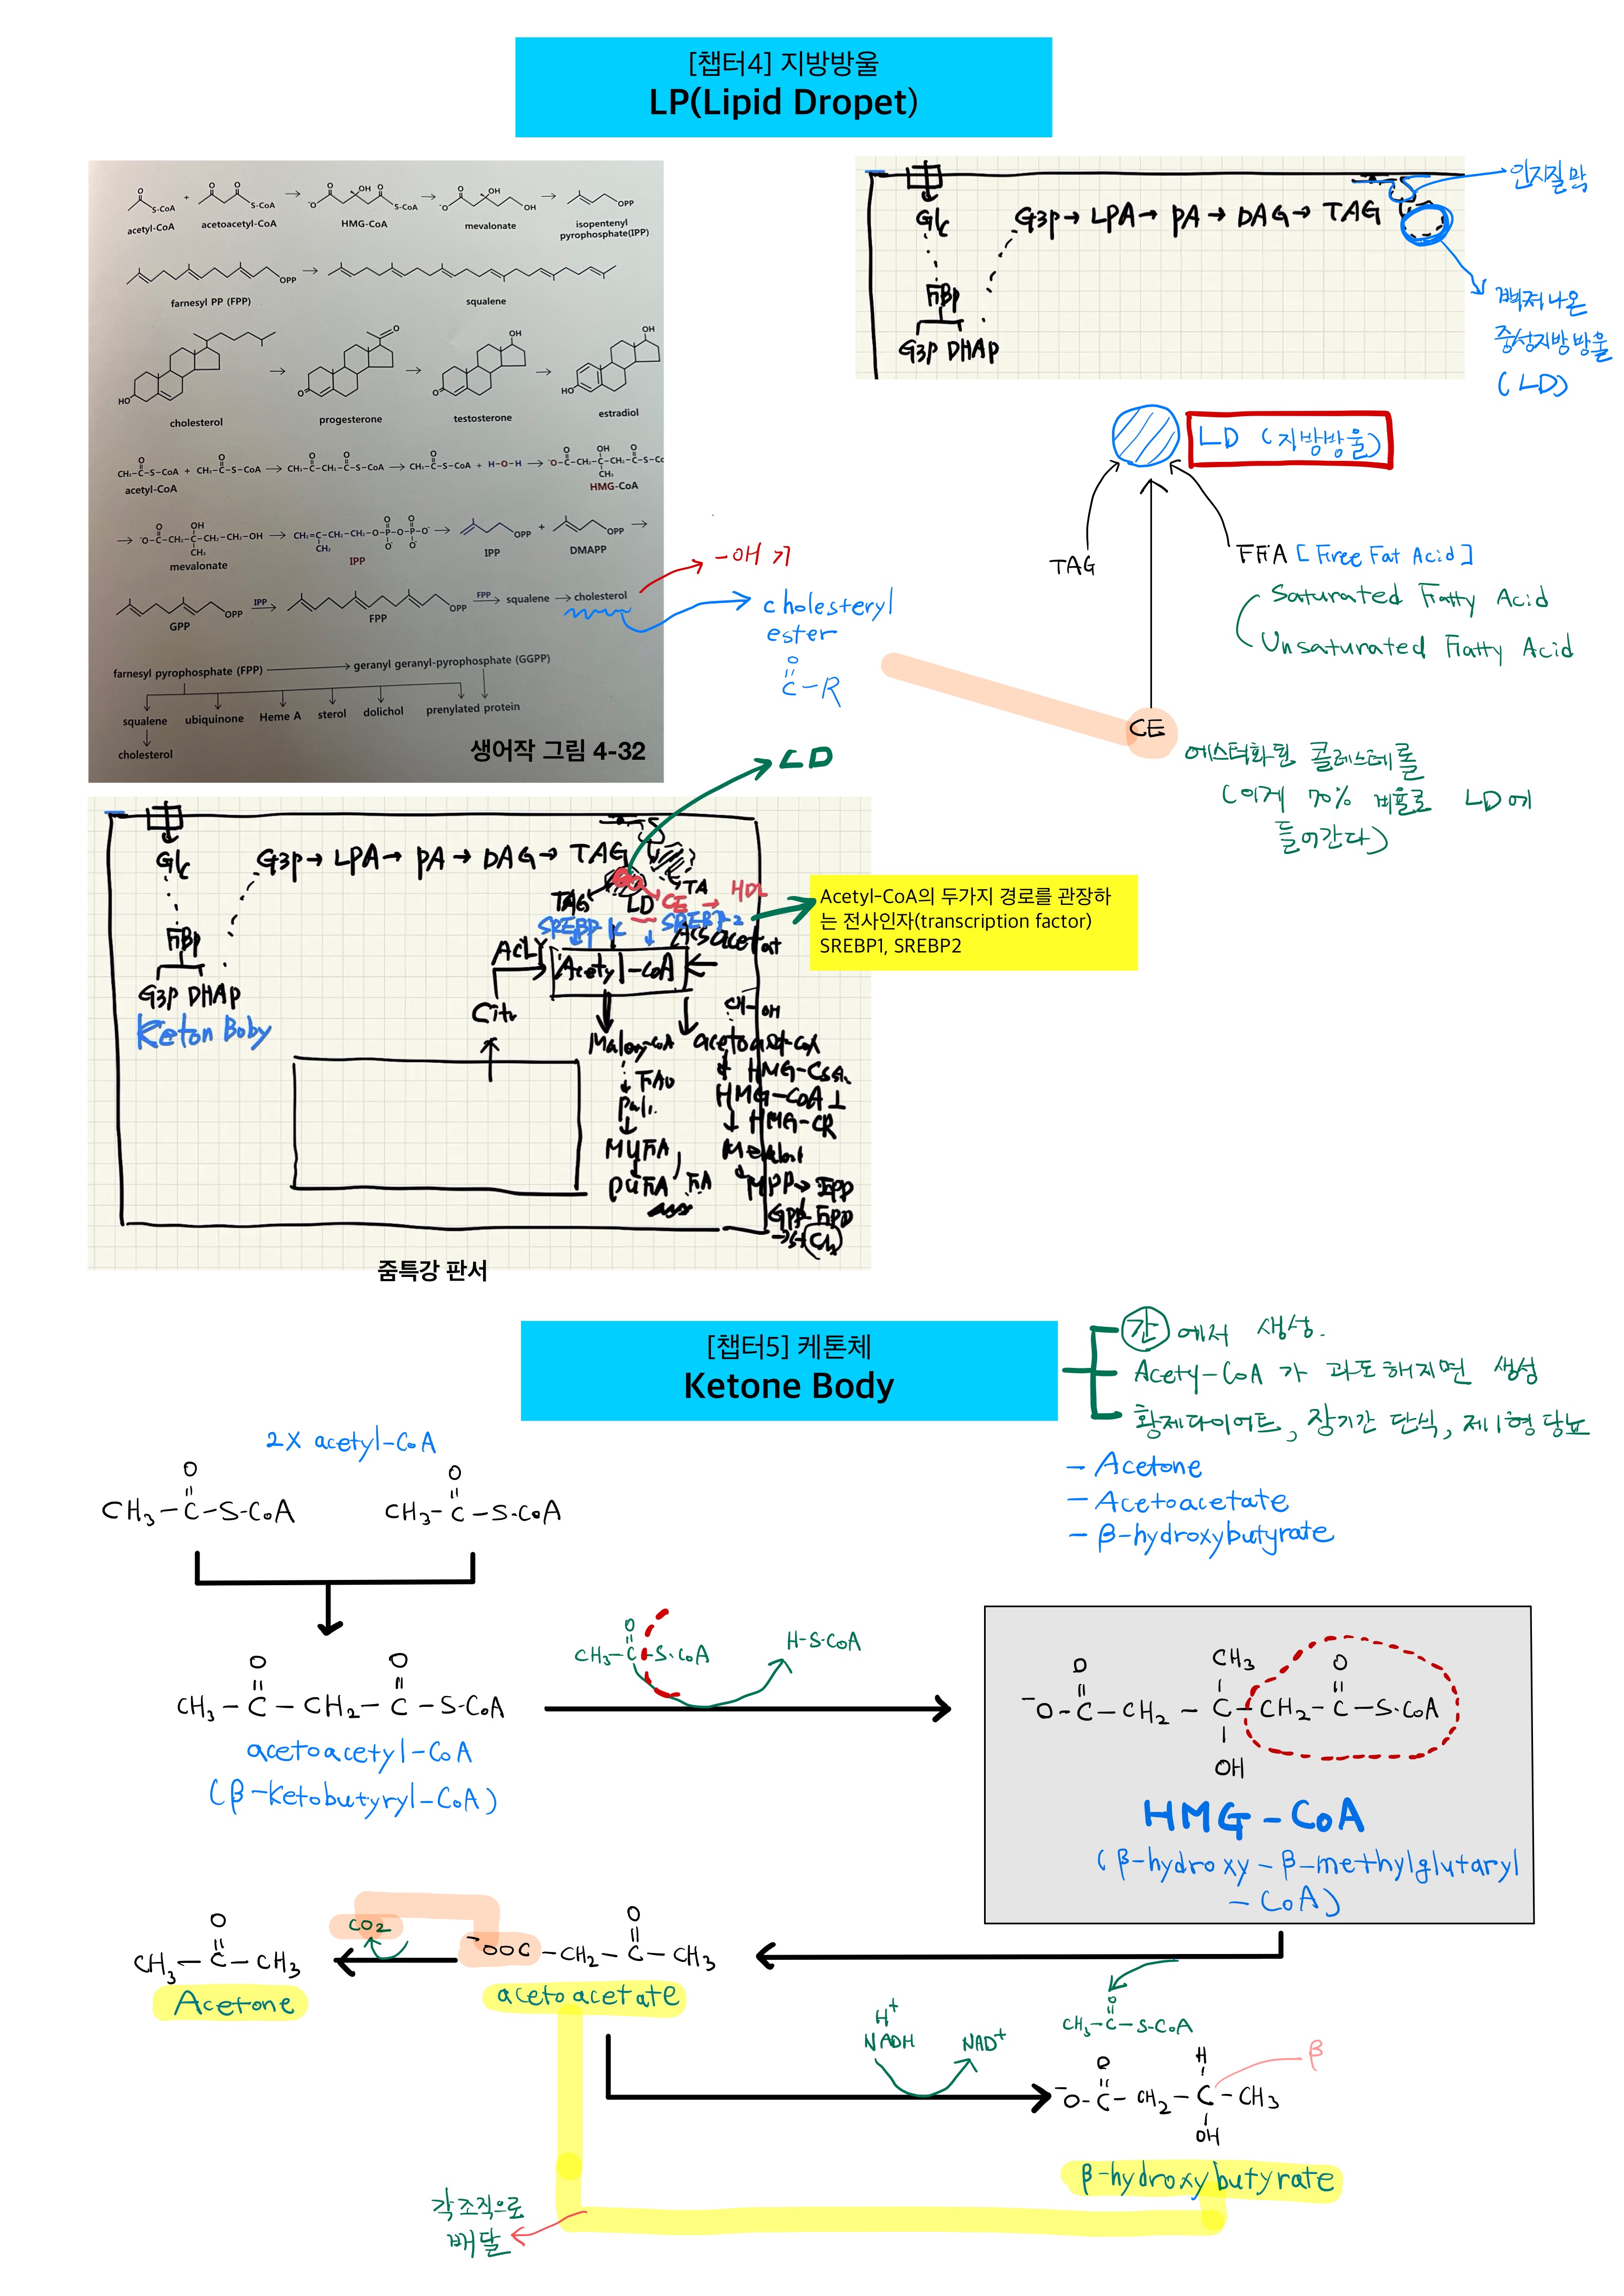 [챕터4] 지방방울
LP(Lipid Dropet)
acetyl-CoA
acetoacetyl-CoA
HMG-CoA
mevalonate
isopentenyl
pyrophosphate(IPP)
farnesyl PP (FPP)
squalene
cholesterol
progesterone
testosterone
estradiol
CH₃-C-S-CoA + CH₃-C-S-CoA → CH₃-C-CH₂-C-S-CoA → CH₃-C-S-CoA + H-O-H →
acetyl-CoA
HMG-CoA
mevalonate
IPP
IPP
DMAPP
GPP
IPP
FPP
FPP
squalene → cholesterol
farnesyl pyrophosphate (FPP) → geranyl geranyl-pyrophosphate (GGPP)
squalene ubiquinone Heme A sterol dolichol prenylated protein
cholesterol
생어작 그림 4-32
-OH 기
cholesteryl
ester
O
C-R
Glc
G3P → LPA → PA → DAG → TAG
FBP
G3P DHAP
인지질 막
빠져나온
중성지방 방울
(LD)
LD (지방방울)
TAG
FFA [Free Fat Acid]
Saturated Fatty Acid
Unsaturated Fatty Acid
CE
에스터화된 콜레스테롤
(이게 70% 비율로 LD에
들어간다)
LD
Glc
G3P → LPA → PA → DAG → TAG
TAG LD CE → HDL
SREBP 1c SREBP2
FBP
G3P DHAP
Keton Boby
ACLY
Acetyl-CoA
Citr
HMG-CoA
HMG-CR
MUFA
PUFA FA
MPP → IPP
GPP FPP
Acetyl-CoA의 두가지 경로를 관장하
는 전사인자(transcription factor)
SREBP1, SREBP2
줌특강 판서
[챕터5] 케톤체
Ketone Body
간에서 생성.
Acety-CoA 가 과도해지면 생성
황제다이어트, 장기간 단식, 제1형 당뇨
- Acetone
- Acetoacetate
- β-hydroxybutyrate
2X acetyl-CoA
O O
CH₃-C-S-CoA CH₃-C-S-CoA
O O
CH₃-C-CH₂-C-S-CoA
acetoacetyl-CoA
(β-ketobutyryl-CoA)
O
CH₃-C-S-CoA
H-S-CoA
O CH₃ O
⁻O-C-CH₂-C-CH₂-C-S-CoA
OH
HMG-CoA
(β-hydroxy-β-methylglutaryl
-CoA)
O
CH₃-C-CH₃
Acetone
CO₂
O
⁻OOC-CH₂-C-CH₃
acetoacetate
O
CH₃-C-S-CoA
H⁺
NADH
NAD⁺
β
O H
⁻O-C-CH₂-C-CH₃
OH
β-hydroxybutyrate
각 조직으로
배달